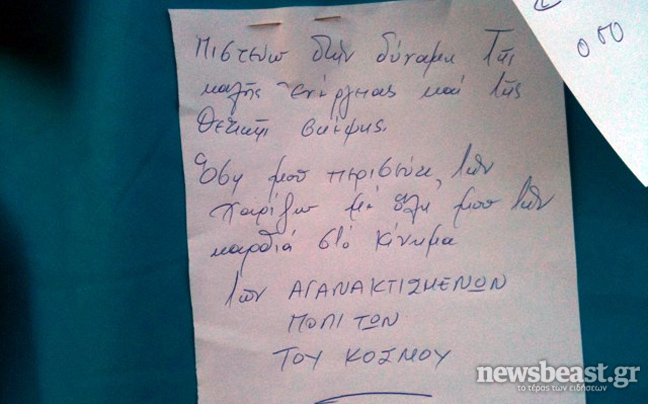 Πιστεύω στην δύναμη της
καλής ενέργειας και της
θετικής σκέψης.
Όση μου περισεύει, την
χαρίζω με όλη μου την
καρδιά στο κίνημα
των ΑΓΑΝΑΚΤΙΣΜΕΝΩΝ
ΠΟΛΙΤΩΝ
ΤΟΥ ΚΟΣΜΟΥ
newsbeast.gr
το τέρας των ειδήσεων